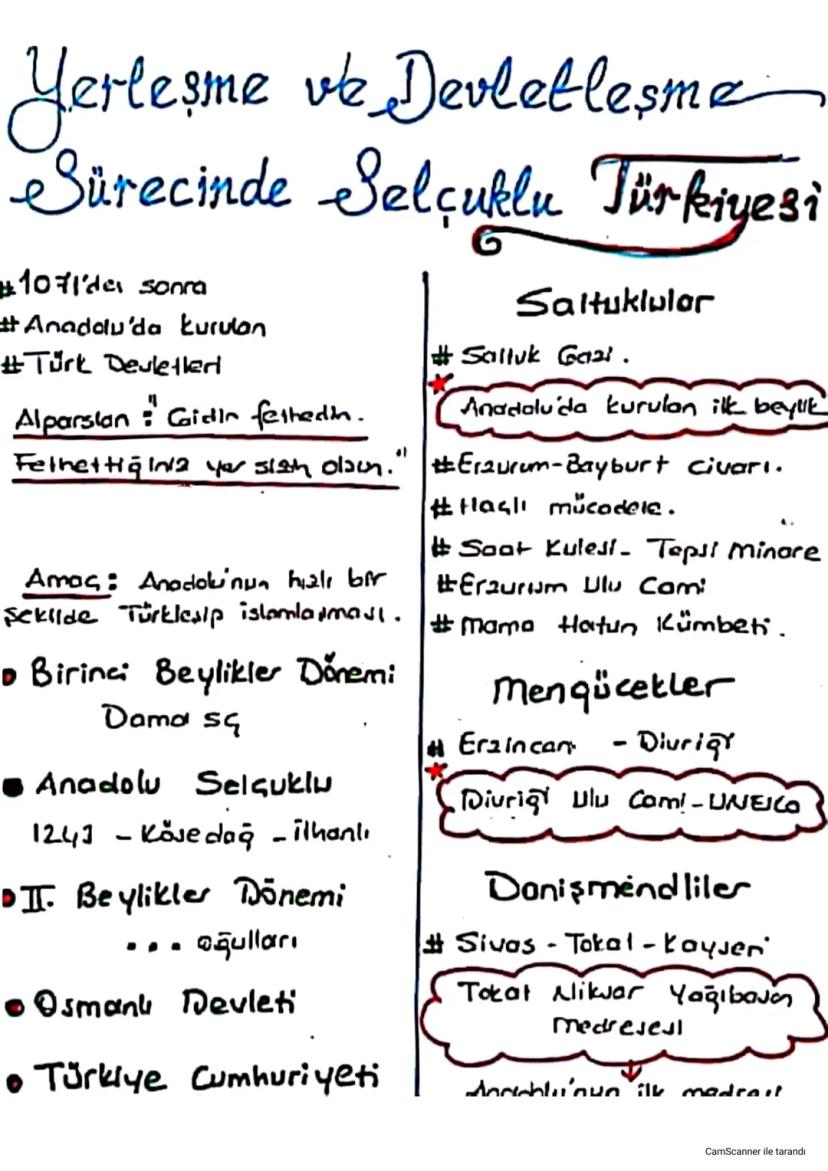 Yerleşme ve Devletleşme
Sürecinde Selçuklu Türkiyesi
#1071'den sonra
#Anadolu'da kurulan
#Türk Devletleri
Alparslan : "Gidin fethedin.
Fethettiğiniz yer sizin olsun."
Amaç: Anadolu'nun hızlı bir
şekilde Türkleşip islamlaşması.
Birinci Beylikler Dönemi
Dama sç
Anadolu Selçuklu
1243 - Kösedağ - ilhanlı
II. Beylikler Dönemi
... oğulları
Osmanlı Devleti
Türkiye Cumhuriyeti
Saltuklular
# Saltuk Gazi.
Anadolu'da kurulan ilk beylik
#Erzurum-Bayburt civarı.
# Haçlı mücadele.
# Saat Kulesi - Tepsi minare
#Erzurum Ulu Cami
# mama Hatun Kümbeti.
mengücekler
# Erzincan - Divriği
Divriği Ulu Cami - UNESCO
Danişmendliler
# Sivas - Tokat - Kayseri
Tokat Niksar Yağıbasan
medresesi
Anadolu'nun ilk medresesi
CamScanner ile tarandı